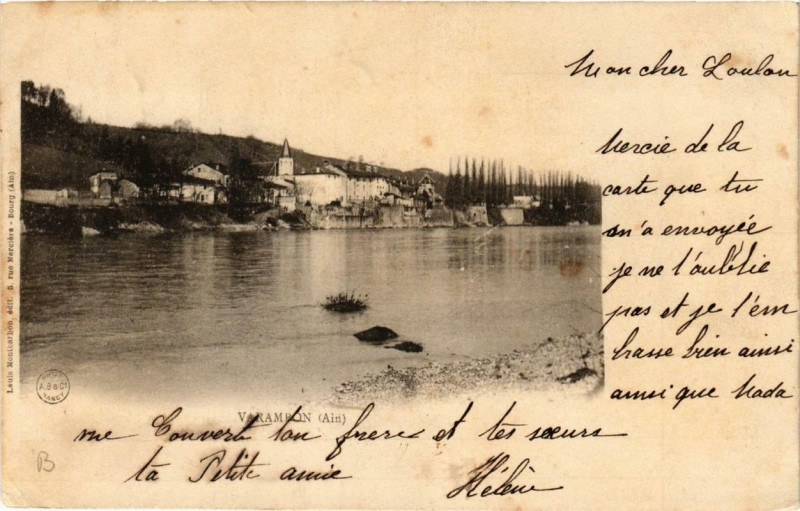 Mon cher Loulou
Mercie de la
carte que tu
m'a envoyée
je ne t'oublie
pas et je t'em
brasse bien ainsi
ainsi que Mada
me Couvert ton frere et tes sœurs
ta Petite amie
Hélène
VARAMBON (Ain)
Louis Montcarbon, édit. 5, rue Mercière - Bourg (Ain)
A.B & Cie
NANCY
B